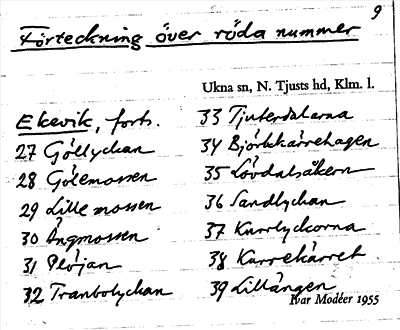 9
Förteckning över röda nummer
Ukna sn, N. Tjusts hd, Klm. l.
Ekevik, forts.
27 Göllyckan
28 Gölemossen
29 Lille mossen
30 Ängmossen
31 Plöjan
32 Tranbolyckan
33 Tjuterdalarna
34 Björkkärrehagen
35 Lövdalsåkern
36 Sandlyckan
37 Knrrlyckorna
38 Karrekärret
39 Lillängen
Ivar Modéer 1955